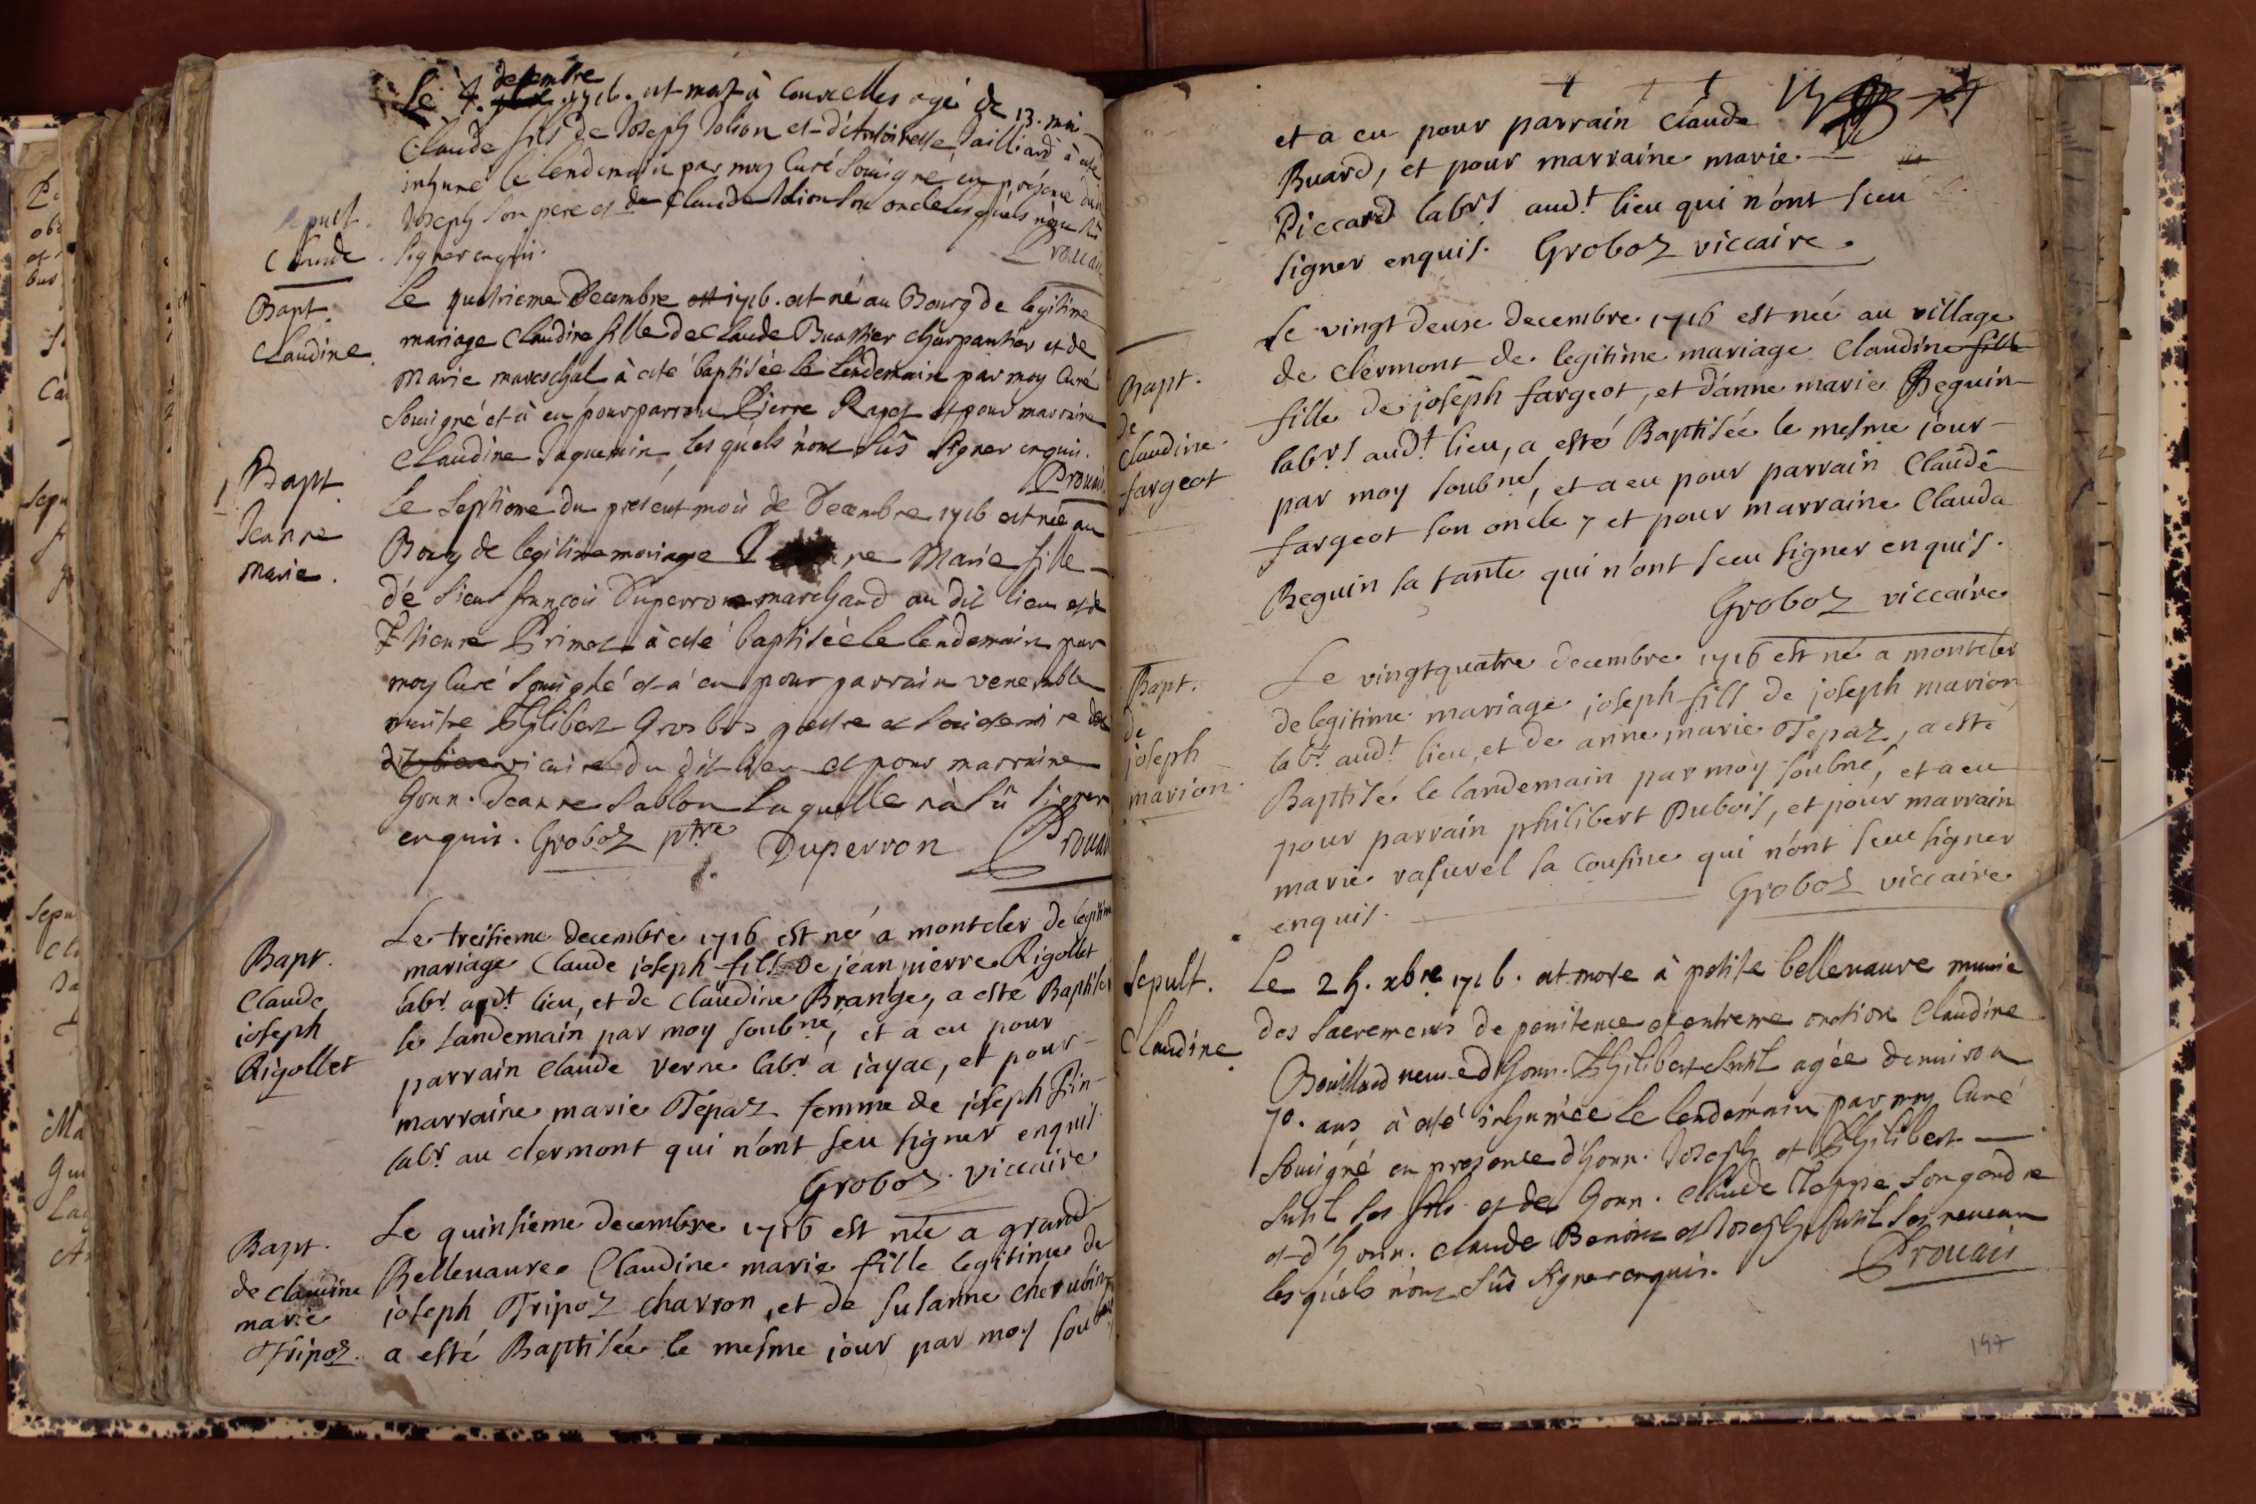 Le 4. decembre 1716. est mort à Courcelles agé de 13. moi
Claude fils de Joseph Jolion et d'Antoinette Jailliard à esté
inhumé le lendemain par moy Curé Souigné en présence dud
Joseph son pere et de Claude Jolion son oncle lesquels n'ont sus
signer enquis.
Prouais
pult.
Claude
Bapt.
Claudine
Le quatrieme Decembre 1716. est né au Bourg de legitime
mariage Claudine fille de Claude Buathier Charpantier et de
Marie mareschal à esté baptisée le lendemain par moy Curé
Souigné et à eu pour parrain Pierre Ragot et pour marraine
Claudine Jaquemin lesquels n'ont sus signer enquis.
Prouais
Bapt
Jeanne
Marie.
Le septieme du present mois de Decembre 1716 est née au
Bourg de legitime mariage J ne Marie fille
de sieur françois Duperron marchand au dit lieu et d
Etienne Primet à esté baptisée le lendemain par
moy Curé Souigné et a eu pour parrain venerable
maitre Philibert Grosbos prestre et
vicaire du dit lieu et pour marraine
honn. Jeanne Sablon laquelle n'a sû signer
enquis. Groboz ptre Duperron Prouais
Bapt.
Claude
joseph
Rigollet
Le treisieme decembre 1716 est né a montcler de legitime
mariage Claude joseph fils de jean pierre Rigollet
labr. audt. lieu, et de Claudine Brange, a esté Baptisé
le landemain par moy soubné, et a eu pour
parrain Claude Verne labr. a jayac, et pour
marraine marie Tepaz femme de joseph Pin
labr. au clermont qui n'ont seu signer enquis.
Groboz viccaire
Bapt.
de claudine
marie
Tripoz.
Le quinsieme decembre 1716 est née a grand
Bellenaure Claudine marie fille legitime de
joseph Tripoz charron, et de susanne cherubin
a esté Baptisée le mesme jour par moy soubné
et a eu pour parrain Claude
Buard, et pour marraine marie
Piccard labrs audt. lieu qui n'ont sceu
signer enquis. Groboz viccaire.
Bapt.
de
Claudine
fargeot
Le vingt deuxe decembre 1716 est née au village
de clermont de legitime mariage Claudine fille
fille de joseph fargeot, et d'anne marie Beguin
labrs audt. lieu, a esté Baptisée le mesme jour
par moy soubné, et a eu pour parrain Claude
fargeot son oncle, et pour marraine Clauda
Beguin sa tante qui n'ont sceu signer enquis.
Groboz viccaire
Bapt.
de
joseph
marion.
Le vingtquatre decembre 1716 est né a montcler
de legitime mariage joseph fils de joseph marion
labr. audt. lieu, et de anne marie Tepaz, a esté
Baptisé le landemain par moy soubné, et a eu
pour parrain philibert Dubois, et pour marrain
marie rasurel sa cousine qui n'ont sceu signer
enquis.
Groboz viccaire
Sepult.
Claudine
Le 25. xbre 1716. est morte à petite bellenaure munie
des sacremens de penitence et extreme onction Claudine
Bouillard veuve d'honn. Philibert Sutil agée denviron
70. ans à esté inhumée le lendemain par moy Curé
Souigné en presence d'honn. Joseph et Philibert
Sutil ses fils et de honn. Claude son gendre
et d'honn. Claude Benoiz et Joseph Sutil ses neveux
lesquels n'ont sûs signer enquis.
Prouais
197